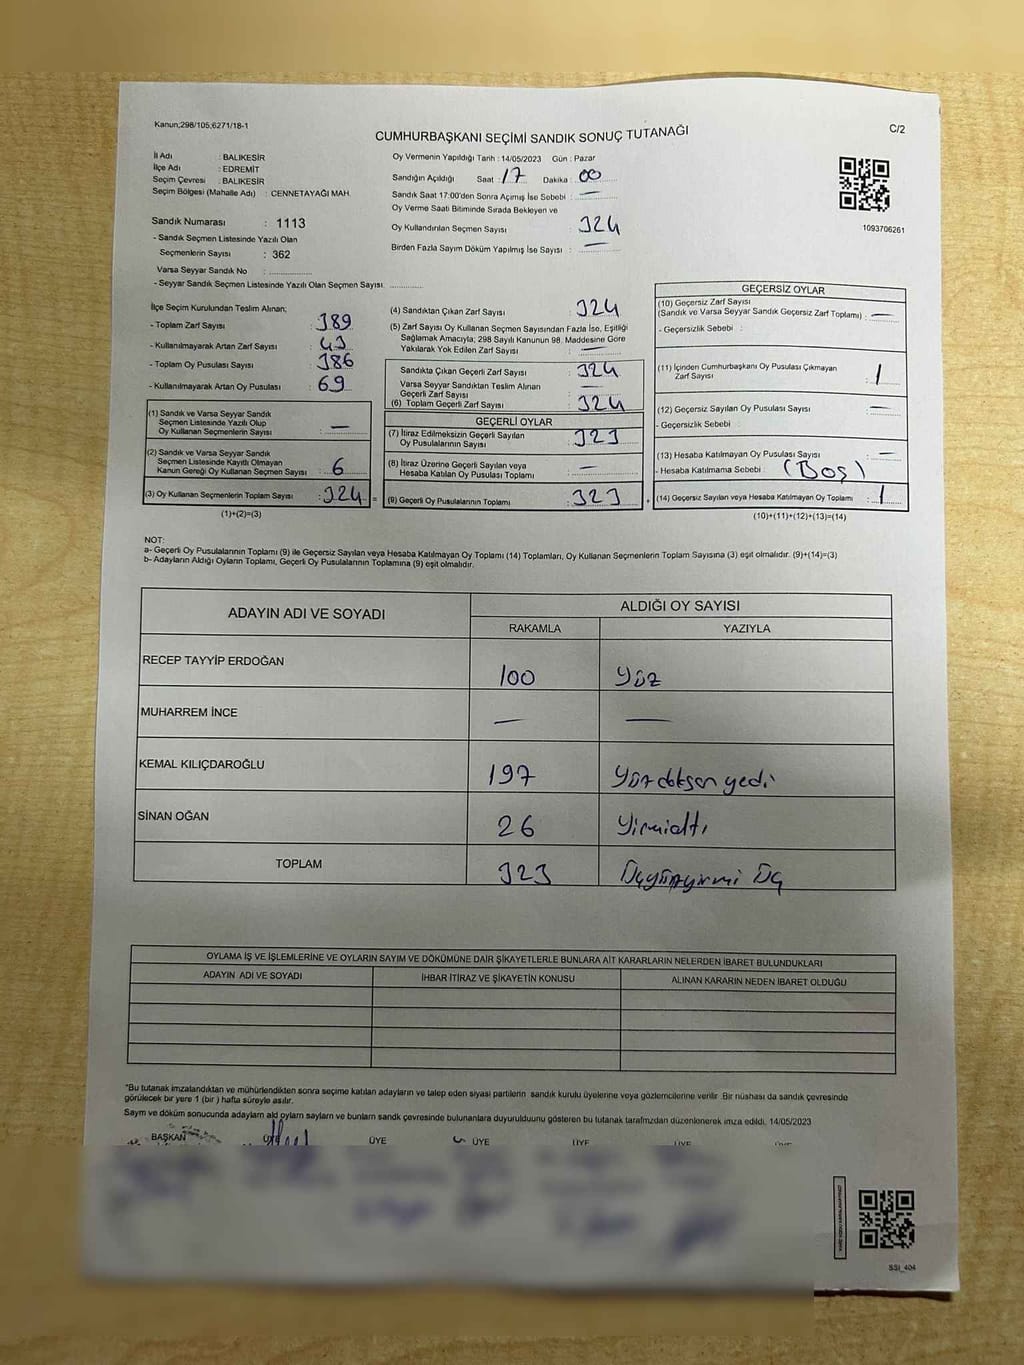 Kanun;298/105;6271/18-1
CUMHURBAŞKANI SEÇİMİ SANDIK SONUÇ TUTANAĞI
C/2
İl Adı : BALIKESİR
İlçe Adı : EDREMİT
Seçim Çevresi : BALIKESİR
Seçim Bölgesi (Mahalle Adı) : CENNETAYAĞI MAH.
Sandık Numarası : 1113
- Sandık Seçmen Listesinde Yazılı Olan
Seçmenlerin Sayısı : 362
Varsa Seyyar Sandık No :
- Seyyar Sandık Seçmen Listesinde Yazılı Olan Seçmen Sayısı:
Oy Vermenin Yapıldığı Tarih : 14/05/2023 Gün : Pazar
Sandığın Açıldığı Saat : 17 Dakika : 00
Sandık Saat 17:00'den Sonra Açımış İse Sebebi : —
Oy Verme Saati Bitiminde Sırada Bekleyen ve
Oy Kullandırılan Seçmen Sayısı : 324
Birden Fazla Sayım Döküm Yapılmış İse Sayısı : —
1093706261
İlçe Seçim Kurulundan Teslim Alınan;
- Toplam Zarf Sayısı : 389
- Kullanılmayarak Artan Zarf Sayısı : 43
- Toplam Oy Pusulası Sayısı : 386
- Kullanılmayarak Artan Oy Pusulası : 69
(1) Sandık ve Varsa Seyyar Sandık
Seçmen Listesinde Yazılı Olup
Oy Kullanan Seçmenlerin Sayısı : —
(2) Sandık ve Varsa Seyyar Sandık
Seçmen Listesinde Kayıtlı Olmayan
Kanun Gereği Oy Kullanan Seçmen Sayısı : 6
(3) Oy Kullanan Seçmenlerin Toplam Sayısı : 324 =
(1)+(2)=(3)
(4) Sandıktan Çıkan Zarf Sayısı : 324
(5) Zarf Sayısı Oy Kullanan Seçmen Sayısından Fazla İse, Eşitliği
Sağlamak Amacıyla; 298 Sayılı Kanunun 98. Maddesine Göre
Yakılarak Yok Edilen Zarf Sayısı : —
Sandıkta Çıkan Geçerli Zarf Sayısı : 324
Varsa Seyyar Sandıktan Teslim Alınan
Geçerli Zarf Sayısı : —
(6) Toplam Geçerli Zarf Sayısı : 324
GEÇERLİ OYLAR
(7) İtiraz Edilmeksizin Geçerli Sayılan
Oy Pusulalarının Sayısı : 323
(8) İtiraz Üzerine Geçerli Sayılan veya
Hesaba Katılan Oy Pusulası Toplamı : —
(9) Geçerli Oy Pusulalarının Toplamı : 323 +
GEÇERSİZ OYLAR
(10) Geçersiz Zarf Sayısı
(Sandık ve Varsa Seyyar Sandık Geçersiz Zarf Toplamı) : —
- Geçersizlik Sebebi :
(11) İçinden Cumhurbaşkanı Oy Pusulası Çıkmayan
Zarf Sayısı : 1
(12) Geçersiz Sayılan Oy Pusulası Sayısı : —
- Geçersizlik Sebebi :
(13) Hesaba Katılmayan Oy Pusulası Sayısı : —
- Hesaba Katılmama Sebebi : (Boş)
(14) Geçersiz Sayılan veya Hesaba Katılmayan Oy Toplamı : 1
(10)+(11)+(12)+(13)=(14)
NOT:
a- Geçerli Oy Pusulalarının Toplamı (9) ile Geçersiz Sayılan veya Hesaba Katılmayan Oy Toplamı (14) Toplamları, Oy Kullanan Seçmenlerin Toplam Sayısına (3) eşit olmalıdır. (9)+(14)=(3)
b- Adayların Aldığı Oyların Toplamı, Geçerli Oy Pusulalarının Toplamına (9) eşit olmalıdır.
ADAYIN ADI VE SOYADI ALDIĞI OY SAYISI
RAKAMLA YAZIYLA
RECEP TAYYİP ERDOĞAN 100 Yüz
MUHARREM İNCE — —
KEMAL KILIÇDAROĞLU 197 Yüzdoksan yedi
SİNAN OĞAN 26 Yirmialtı
TOPLAM 323 Üçyüzyirmi Üç
OYLAMA İŞ VE İŞLEMLERİNE VE OYLARIN SAYIM VE DÖKÜMÜNE DAİR ŞİKAYETLERLE BUNLARA AİT KARARLARIN NELERDEN İBARET BULUNDUKLARI
ADAYIN ADI VE SOYADI İHBAR İTİRAZ VE ŞİKAYETİN KONUSU ALINAN KARARIN NEDEN İBARET OLDUĞU
"Bu tutanak imzalandıktan ve mühürlendikten sonra seçime katılan adayların ve talep eden siyasi partilerin sandık kurulu üyelerine veya gözlemcilerine verilir. Bir nüshası da sandık çevresinde
görülecek bir yere 1 (bir) hafta süreyle asılır.
Sayım ve döküm sonucunda adayların ald oyların sayların ve bunların sandk çevresinde bulunanlara duyurulduunu gösteren bu tutanak tarafmzdan düzenlenerek imza edildi. 14/05/2023
BAŞKAN ÜYE ÜYE ÜYE ÜYE
SSI_404